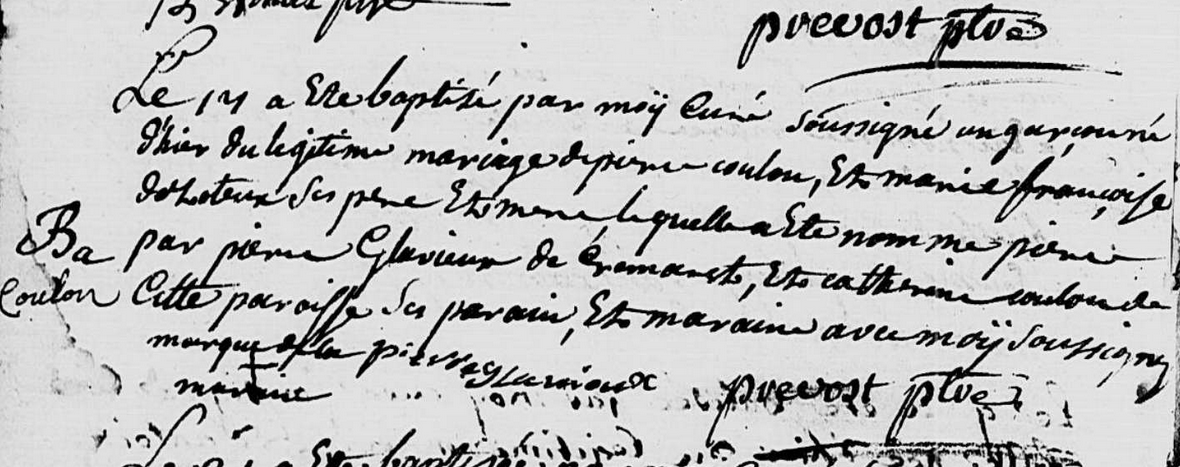 prevost ptre
Le 17 a Ete baptisé par moÿ Curé soussigné un garçon né
d'hier du legitime mariage de pierre coulon, Et marie françoise
ses pere Et mere, lequelle a Ete nomme pierre
Ba par pierre Glavieux de Cremarest, Et catherine coulon de
Coulon Cette paroisse ses parain, Et maraine avec moÿ soussignez
marque de la pierre glavieux
maraine prevost ptre
a Ete baptisé